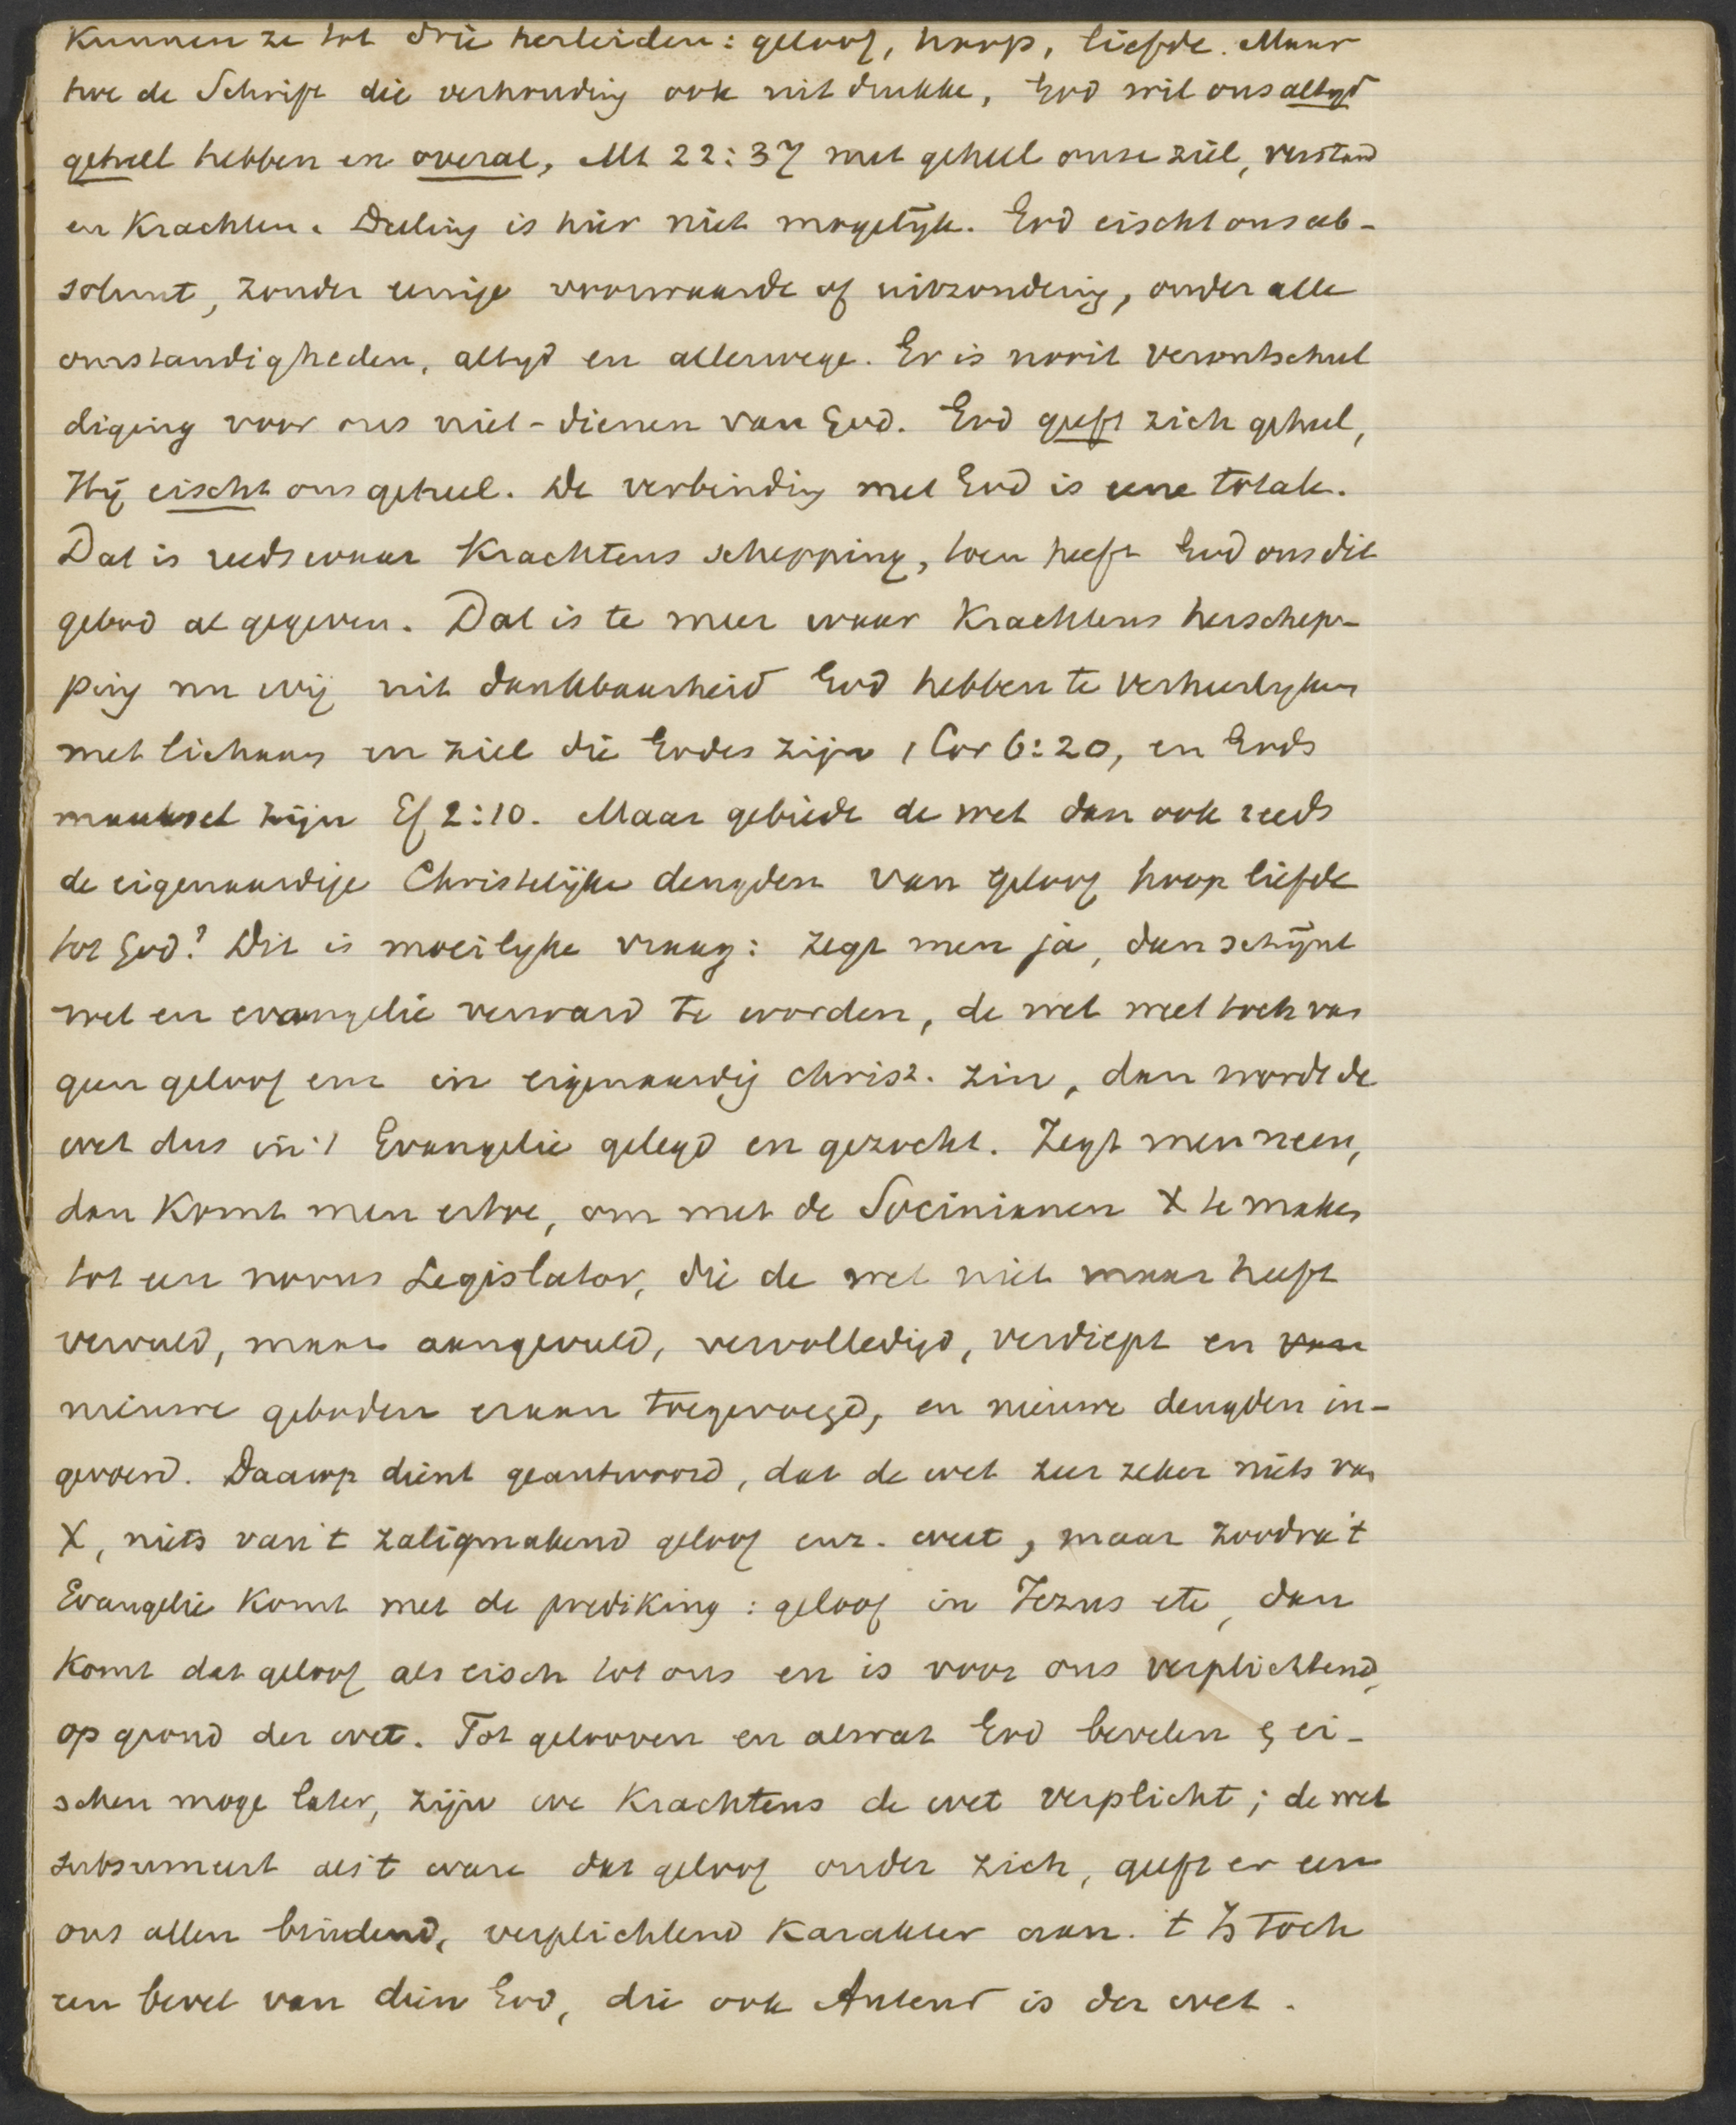 Kunnen ze tot drie herleiden: geloof, hoop, liefde. Maar
hoe de Schrift die verhouding ook uitdrukke, God wil ons altyd
geheel hebben en overal, Mt 22:37 met geheel onze ziel, verstand
en Krachten. Deeling is hier niet mogelijk. God eischt ons ab-
soluut, zonder eenige voorwaarde of uitzondering, onder alle
omstandigheden, altyd en allerwege. Er is nooit verontschul
diging voor ons niet-dienen van God. God geeft zich geheel,
Hij eischt ons geheel. De verbinding met God is eene totale.
Dat is reeds waar Krachtens schepping, toen heeft God ons dit
gebod al gegeven. Dat is te meer waar Krachtens herschep-
ping nu wij uit dankbaarheid God hebben te verheerlyken
met lichaam en ziel die Godes zijn 1 Cor 6:20, en Gods
maaksel zijn Ef 2:10. Maar gebiedt de wet dan ook reeds
de eigenaardige Christelijke deugden van geloof hoop liefde
tot God? Dit is moeilyke vraag: zegt men ja, dan schijnt
wet en evangelie verward te worden, de wet weet toch van
geen geloof enz in eigenaardig christ. zin, dan wordt de
wet dus in 't Evangelie gelegd en gezocht. Zegt men neen,
dan Komt men ertoe, om met de Socinianen X te maken
tot een novus Legislator, die de wet niet maar heeft
vervuld, maar aangevuld, vervolledigd, verdiept en van
nieuwe geboden eraan toegevoegd, en nieuwe deugden in-
gevoerd. Daarop dient geantwoord, dat de wet zeer zeker niets van
X, niets van 't zaligmakend geloof enz. weet, maar zoodra 't
Evangelie Komt met de prediking: geloof in Jezus etc, dan
Komt dat geloof als eisch tot ons en is voor ons verplichtend,
op grond der wet. Tot gelooven en alwat God bevelen & ei-
schen moge later, zijn we Krachtens de wet verplicht; de wet
subsumeert als 't ware dat geloof onder zich, geeft er een
ons allen bindend, verplichtend Karakter aan. 't Is toch
een bevel van dien God, die ook Auteur is der wet.